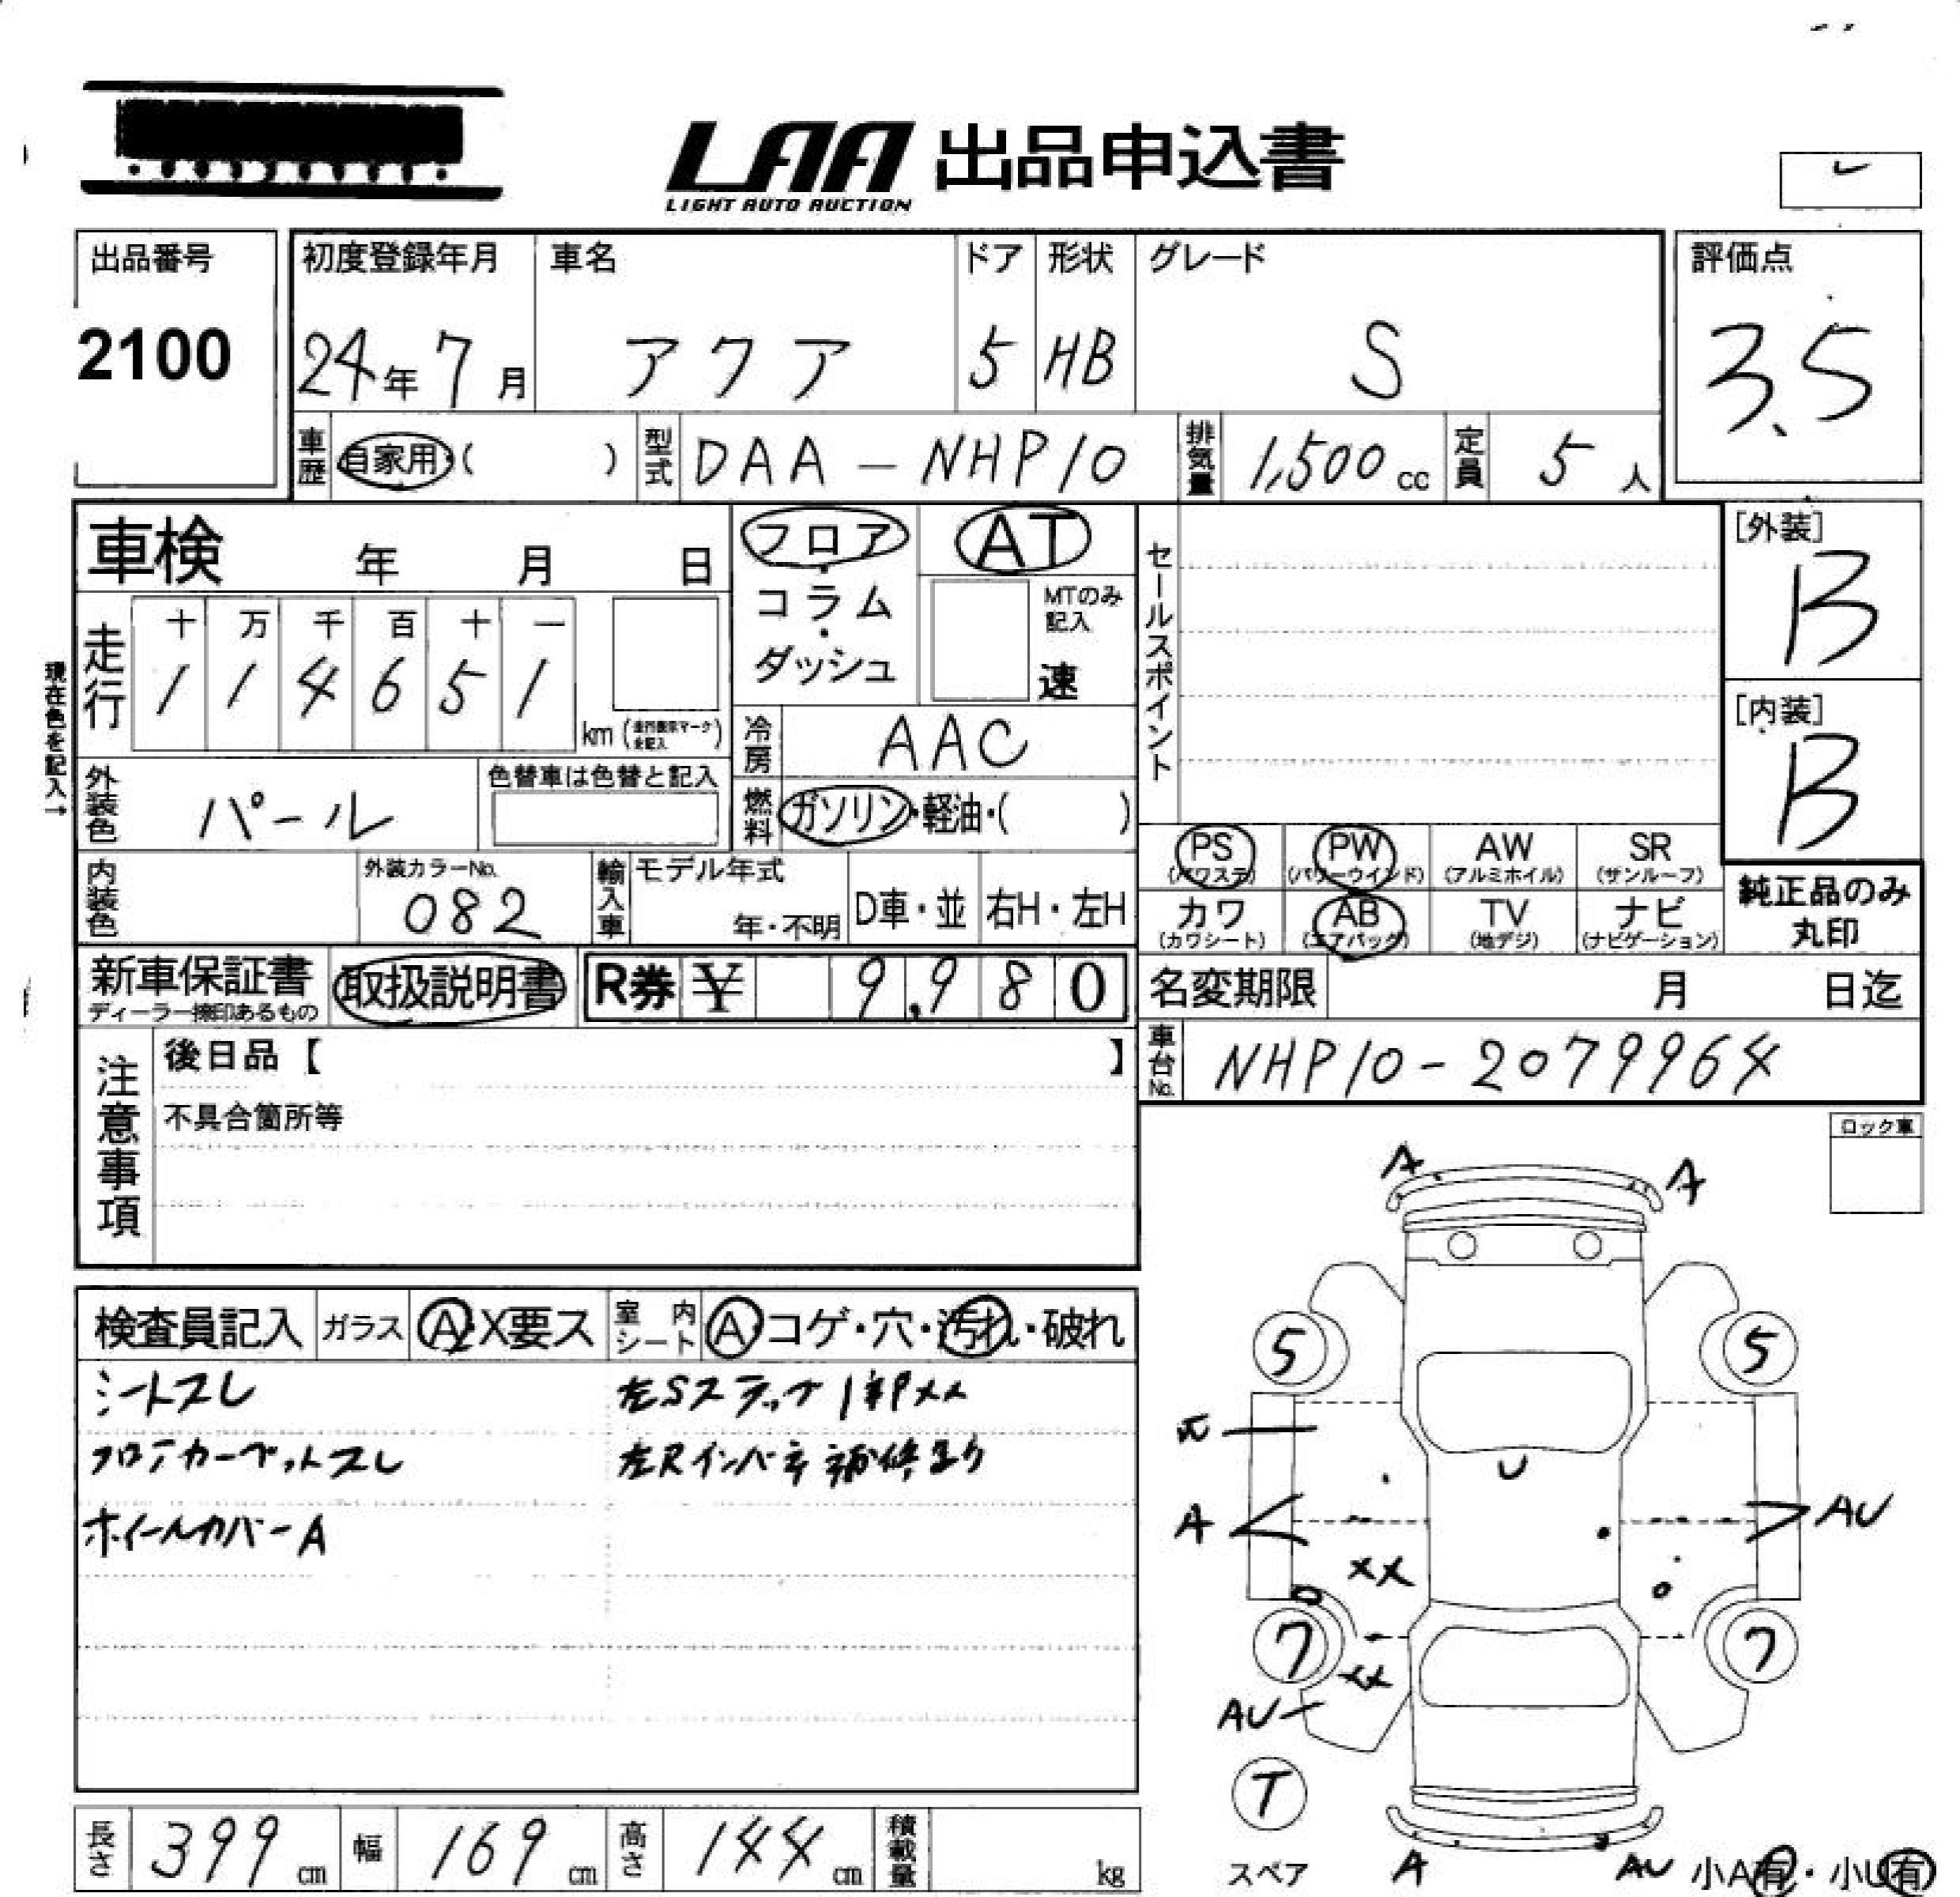 LAA 出品申込書
LIGHT AUTO AUCTION
出品番号
2100
初度登録年月
24年 7月
車名
アクア
ドア
5
形状
HB
グレード
S
評価点
3.5
車歴 自家用・( )
型式 DAA-NHP10
排気量 1,500 cc
定員 5 人
車検 年 月 日
フロア・コラム・ダッシュ
AT
MTのみ記入
速
セールスポイント
[外装]
B
[内装]
B
現在色を記入→
走行
十 万 千 百 十 一
1 1 4 6 5 1
km (走行表示マークを記入)
冷房 AAC
外装色 パール
色替車は色替と記入
燃料 ガソリン・軽油・( )
内装色
外装カラーNo.
082
輸入車
モデル年式
年・不明
D車・並
右H・左H
PS (パワステ)
PW (パワーウインド)
AW (アルミホイル)
SR (サンルーフ)
カワ (カワシート)
AB (エアバッグ)
TV (地デジ)
ナビ (ナビゲーション)
純正品のみ
丸印
新車保証書
ディーラー捺印あるもの
取扱説明書
R券 ¥ 9,980
名変期限 月 日迄
車台No. NHP10-2079964
注意事項
後日品【 】
不具合箇所等
ロック車
検査員記入 ガラス A・X要ス 室内シート A コゲ・穴・汚れ・破れ
シートスレ
フロアカーペットスレ
ホイールカバーA
左Sステップ1部PXX
左Rインパネ補修有り
A A
5 5
U
A
AU
XX
7 7
XX
AU
T
スペア
A
AU
小A有・小U有
長さ 399 cm
幅 169 cm
高さ 144 cm
積載量 kg